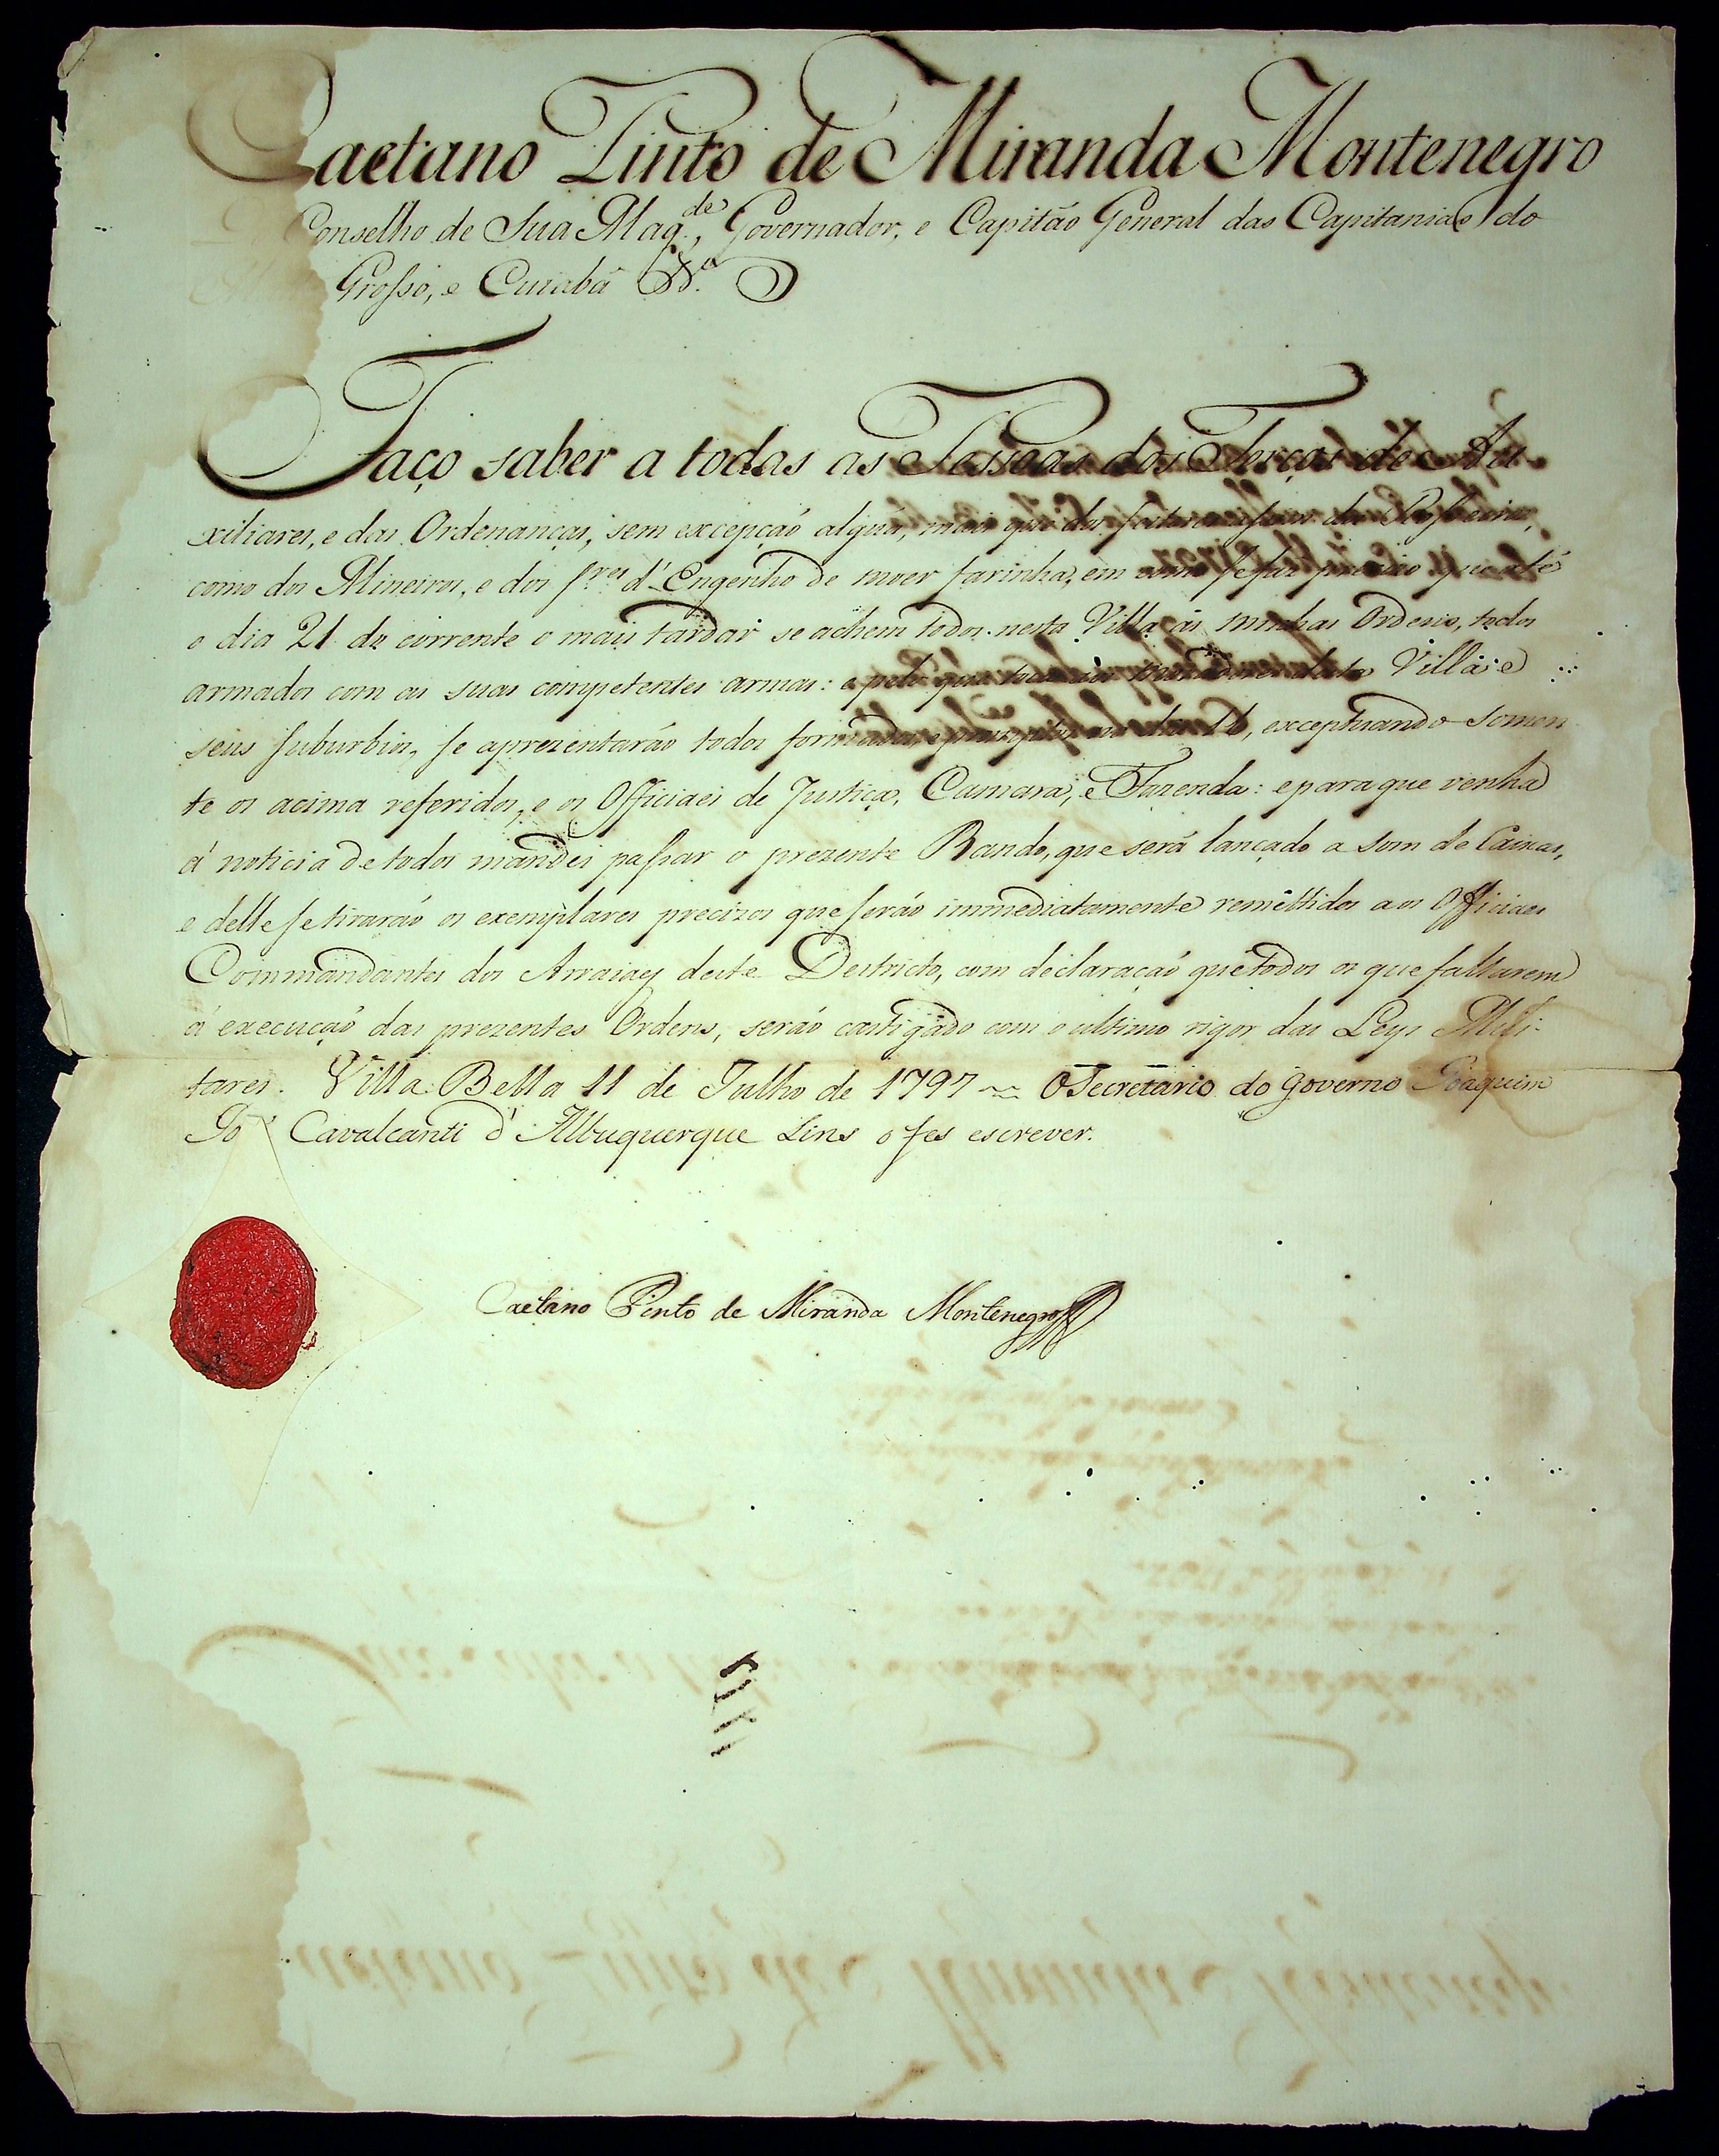 Caetano Pinto de Miranda Montenegro
Conselho de Sua Mag.de, Governador, e Capitão General das Capitanias do
Grosso, e Cuiabá &.a
Faço saber a todas as Pessoas dos Terços de Au-
xiliares, e das Ordenanças, sem excepção algũa, mais que dos
como dos Mineiros, e dos Sres d'Engenho de moer farinha, em como se faz preciso que até
o dia 21 do corrente o mais tardar se achem todos nesta Villa ás minhas Ordens, todos
armados com as suas competentes armas: e pelo que toca aos Villa: e
seus suburbios, se aprezentarão todos formados, exceptuando somen
te os acima referidos, e os Officiaes de Justiça, Camara, e Fazenda: e para que venha
á noticia de todos mandei passar o prezente Bando, que será lançado a som de Caixas,
e delle se tirarão os exemplares precizos que serão immediatamente remettidos aos Officiaes
Commandantes dos Arraiaes deste Destricto, com declaração que todos os que faltarem
á execução das prezentes Ordens, serão castigado com o ultimo rigor das Leys Mili-
tares. Villa Bella 11 de Julho de 1797 ~ O Secretario do Governo Joaquim
Jo Cavalcanti d'Albuquerque Lins o fes escrever.
Caetano Pinto de Miranda Montenegro